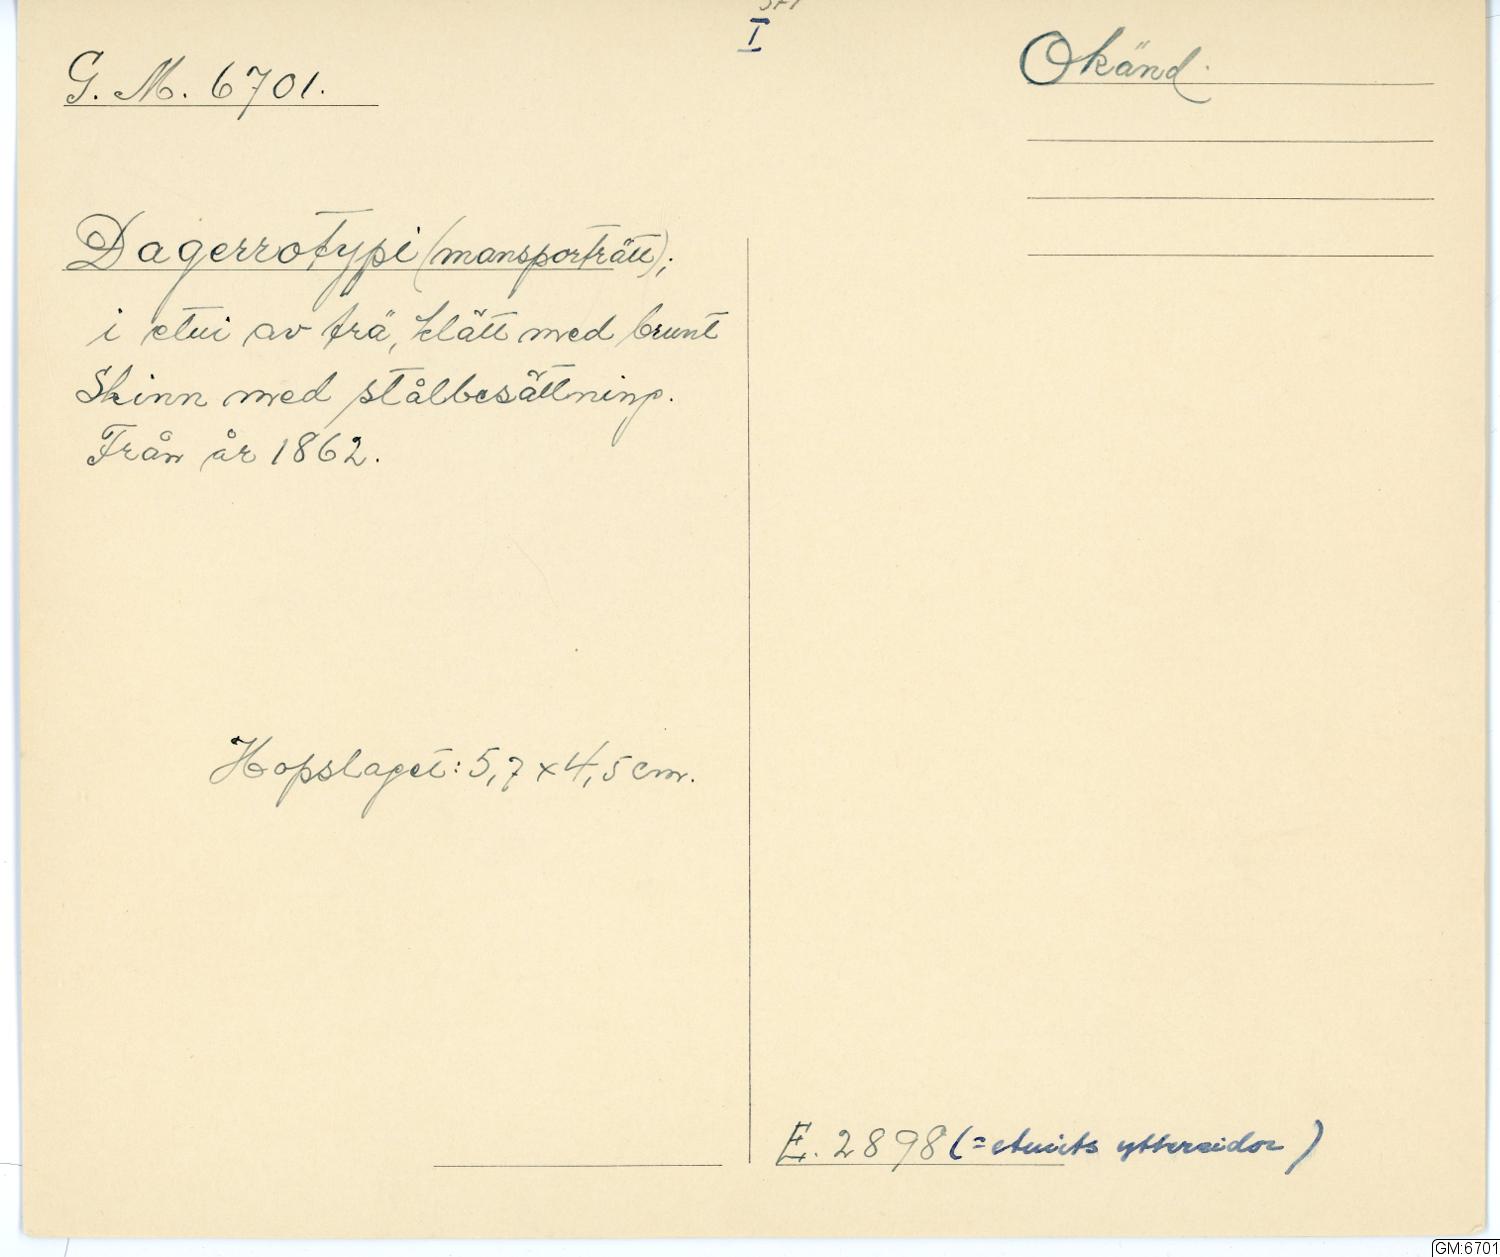 I
G. M. 6701.
Okänd.
Dagerrotypi (mansporträtt);
i etui av trä, klätt med brunt
Skinn med stålbesättning.
Från år 1862.
Hopslaget: 5,7 x 4,5 cm.
E. 2898 (= etuiets yttersidor)
GM:6701